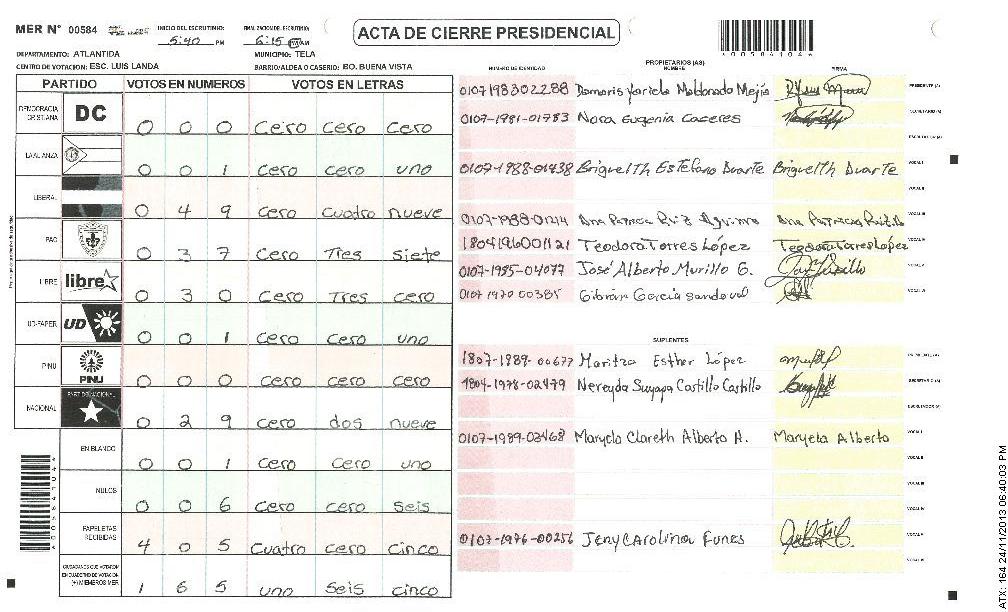 MER N° 00584
INICIO DEL ESCRUTINIO:
5:40 PM
FINALIZACION DEL ESCRUTINIO:
6:15 PM AM
ACTA DE CIERRE PRESIDENCIAL
DEPARTAMENTO: ATLANTIDA
MUNICIPIO: TELA
CENTRO DE VOTACION: ESC. LUIS LANDA
BARRIO/ALDEA O CASERIO: BO. BUENA VISTA
PARTIDO VOTOS EN NUMEROS VOTOS EN LETRAS
DEMOCRACIA CRISTIANA DC 0 0 0 Cero cero cero
LA ALIANZA 0 0 1 Cero cero uno
LIBERAL 0 4 9 cero cuatro nueve
PAC 0 3 7 Cero Tres siete
LIBRE libre 0 3 0 Cero Tres cero
UD-FAPER UD 0 0 1 cero cero uno
PINU PINU 0 0 0 Cero cero cero
NACIONAL PARTIDO NACIONAL 0 2 9 cero dos nueve
EN BLANCO 0 0 1 cero cero uno
NULOS 0 0 6 cero cero seis
PAPELETAS RECIBIDAS 4 0 5 Cuatro cero cinco
CIUDADANOS QUE VOTARON EN CUADERNO DE VOTACION (+) MIEMBROS MER 1 6 5 uno Seis cinco
PROPIETARIOS (AS)
NUMERO DE IDENTIDAD NOMBRE FIRMA
0107198302288 Damaris Yariela Maldonado Mejía PRESIDENTE (A)
0107-1981-01783 Nora Eugenia Caceres SECRETARIO (A)
ESCRUTADOR (A)
0107-1988-01438 Briguelth Estefano Duarte Briguelth Duarte VOCAL I
VOCAL II
Ana Patricia Ruiz VOCAL III
1804196001121 Teodora Torres López Teodora Torres López VOCAL IV
0107-1985-04077 José Alberto Murillo G. VOCAL V
0107 1970 00385 Gibran Garcia Sandoval VOCAL VI
SUPLENTES
1807-1989-00677 Maritza Esther López PRESIDENTE (A)
1804-1978-02479 Nereyda Suyapa Castillo Castillo SECRETARIO (A)
ESCRUTADOR (A)
0107-1989-02468 Maryela Clareth Alberto A. Maryela Alberto VOCAL I
VOCAL II
VOCAL III
VOCAL IV
0107-1976-00256 Jeny Carolina Funes VOCAL V
VOCAL VI
ATX: 164 24/11/2013 06:40:03 PM